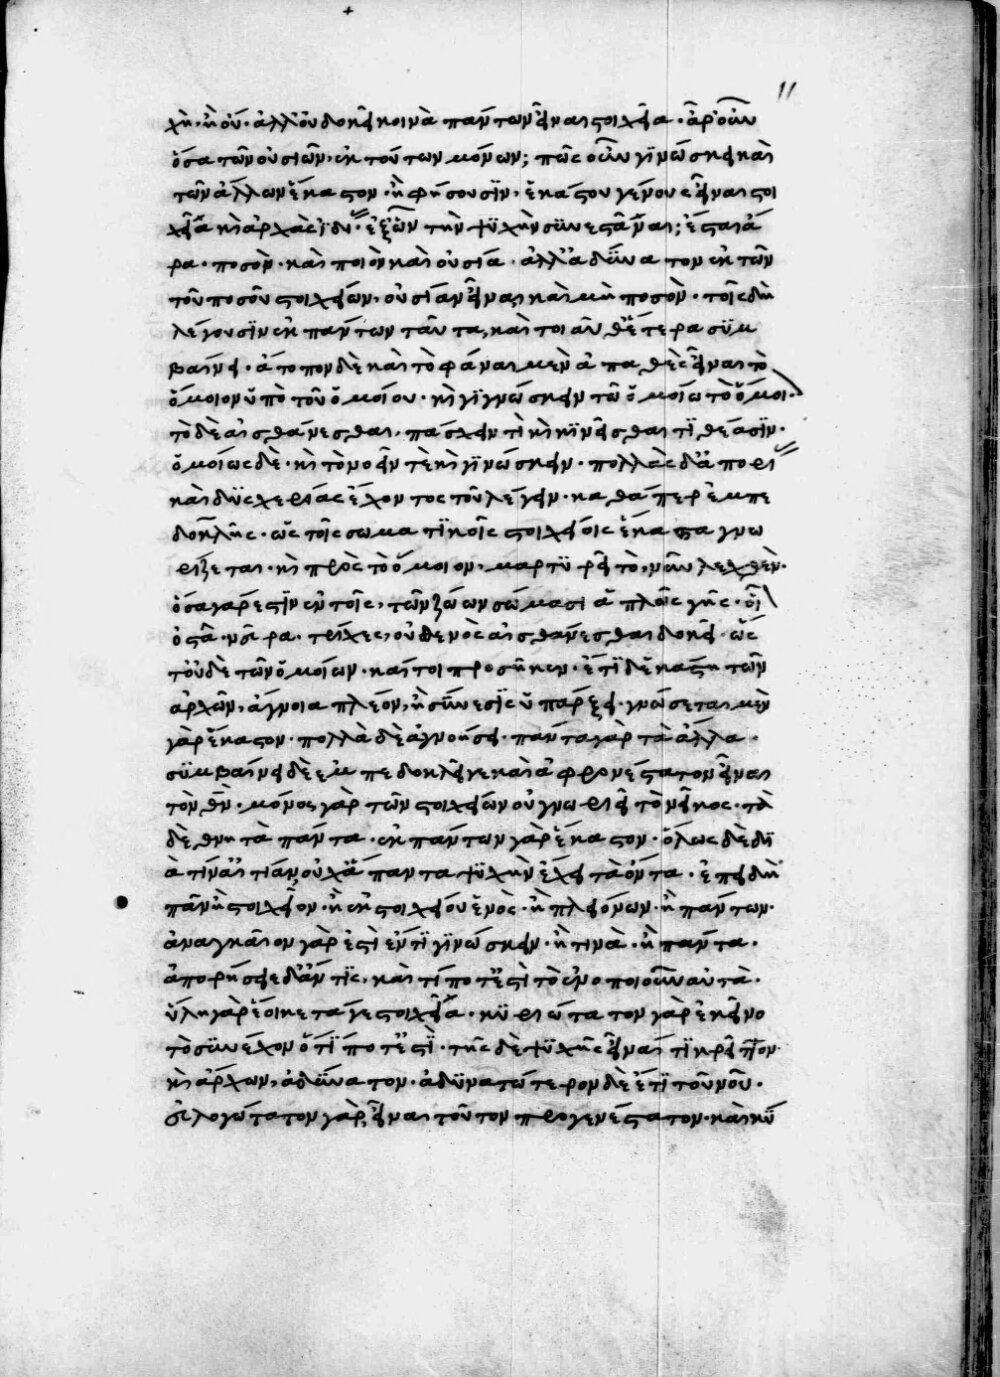 χὴ· ἢ οὔ· ἀλλ' οὐ δοκεῖ κοινὰ πάντων εἶναι στοιχεῖα· ἆρ' οὖν
ὅσα τῶν οὐσιῶν, ἐκ τούτων μόνων; πῶς οὖν γϊνώσκει καὶ
τῶν ἄλλων ἕκαστον· ἢ φήσουσϊν, ἑκάστου γένους εἶναι στοι
χεῖα κὶ ἀρχὰς ἰδί· ἐξ ὧν τὴν ψϋχὴν σϋνεστάναι; ἔσται ἄ
ρα· ποσὸν· καὶ ποιὸν καὶ οὐσία· ἀλλ' ἀδύνατον ἐκ τῶν
τοῦ ποσοῦ στοιχείων, οὐσίαν εἶναι καὶ μὴ ποσὸν· τοῖς δὴ
λέγουσϊν ἐκ πάντων ταῦτα, καὶ τοιαῦθ' ἕτερα σϋμ
βαίνει· ἄτοπον δὲ καὶ τὸ φάναι μὲν ἀπαθὲς εἶναι τὸ
ὅμοιον ὑπὸ τοῦ ὁμοίου· κὶ γϊγνώσκειν τῶ ὁμοίω τὸ ὅμοι·
τὸ δὲ αἰσθάνεσθαι, πάσχειν τὶ κὶ κϊνεῖσθαι τϊθέασϊν·
ὁμοίως δὲ· κὶ τὸ νοεῖν τὲ κὶ γϊνώσκειν· πολλὰς δ' ἀπορί
καὶ δϋσχερίας ἔχοντος τοῦ λέγειν· καθάπερ ἐμπε
δοκλῆς· ὡς τοῖς σωματϊκοῖς στοιχείοις ἕκαστα γνω
ρίζεται· κὶ πρὸς τὸ ὅμοιον, μαρτϋρεῖ τὸ νῦν λεχθὲν·
ὅσα γάρ εστϊν ἐν τοῖς, τῶν ζώων σώμασι ἁπλῶς γῆς· οἷ
ὀστᾶ· νεῦρα· τρίχες, οὐθενὸς αἰσθάνεσθαι δοκεῖ· ὥς
τ' οὐδὲ τῶν ὁμοίων· καίτοι προσῆκεν· ἔτϊ δ' ἑκάστη τῶν
ἀρχῶν, ἄγνοια πλέον, ἢ σύνεσϊς ὑπάρξει· γνώσεται μὲν
γὰρ ἕκαστον· πολλὰ δὲ ἀγνοήσει· πάντα γὰρ τὰ ἄλλα·
σϋμβαίνει δὲ εμπεδοκλεῖ γε καὶ ἀφρονέστατον εἶναι
τὸν θν· μόνος γὰρ τῶν στοιχείων οὐ γνωριεῖ τὸ νεῖκος· τὰ
δὲ θνητὰ πάντα· ἐκ πάντων γὰρ ἕκαστον· ὅλως δὲ δϊ
ὰ τίν' αἰτίαν οὐχ ἅπαντα ψϋχὴν ἔχει τὰ ὄντα· ἐπειδὴ
πᾶν ἢ στοιχεῖον· ἢ ἐκ στοιχείου ἑνὸς· ἢ πλειόνων· ἢ πάντων·
ἀναγκαῖον γάρ ἐστὶ ἕν τϊ γϊνώσκειν· ἢ τινὰ· ἢ πάντα·
ἀπορήσειε δ' ἄν τϊς, καὶ τί ποτ' ἐστὶ τὸ ἑνοποιοῦν αὐτὰ·
ὕλη γὰρ ἔοικε τά γε στοιχεῖα· κϋριώτατον γὰρ ἐκεῖνο
τὸ σϋνέχον ὅ τϊ ποτ' ἐστϊ· τῆς δὲ ψϋχῆς εἶναί τϊ κρεῖττον
κὶ ἄρχων, ἀδύνατον· ἀδϋνατώτερον δὲ ἔτϊ τοῦ νοῦ·
εὐλογώτατον γὰρ, εἶναι τοῦτον προγενέστατον· καὶ κύ